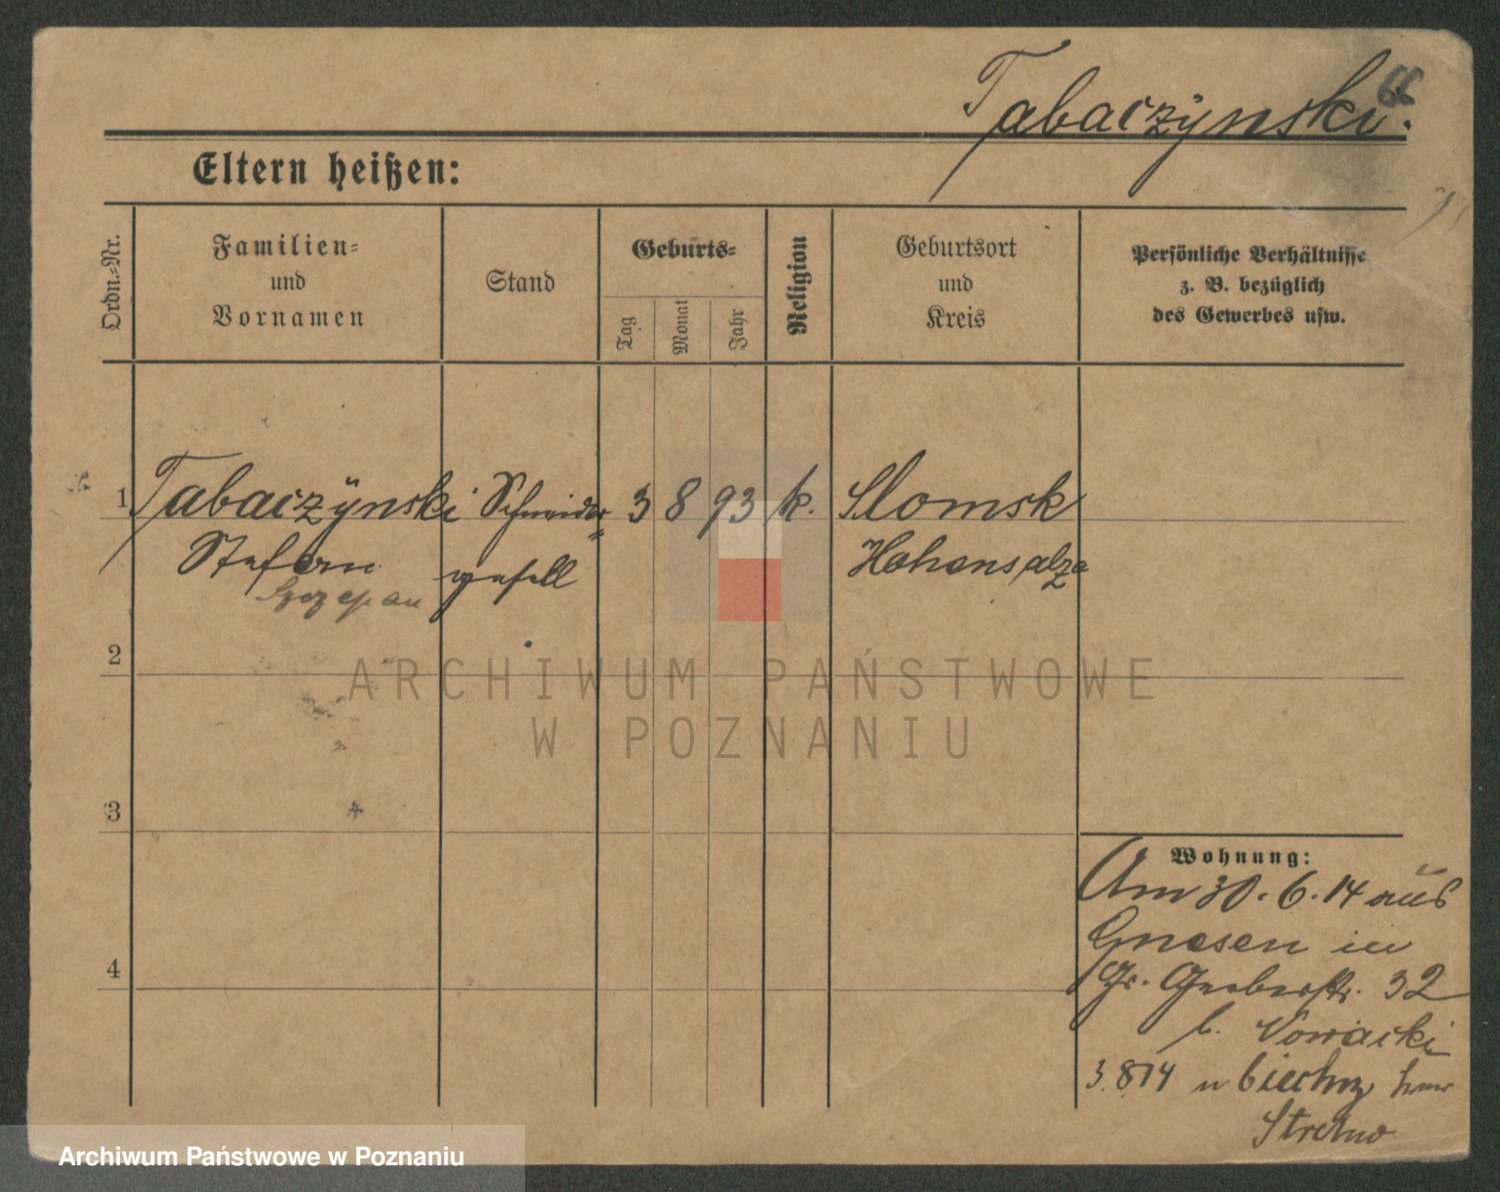 66
Tabaczynski.
Eltern heißen:
Ordn.-Nr.
Familien-
und
Vornamen
Stand
Geburts-
Tag
Monat
Jahr
Religion
Geburtsort
und
Kreis
Persönliche Verhältnisse
z. B. bezüglich
des Gewerbes usw.
1 Tabaczynski Schneider= 3 8 93 k. Slomsk
Stefan gesell Hohensalza
Szczepan
2
3
4
Wohnung:
Am 30.6.14 aus
Gnesen in
Gr. Gerberstr. 32
b. Nowacki
3.8 14 n
Strelno
ARCHIWUM PAŃSTWOWE
W POZNANIU
Archiwum Państwowe w Poznaniu